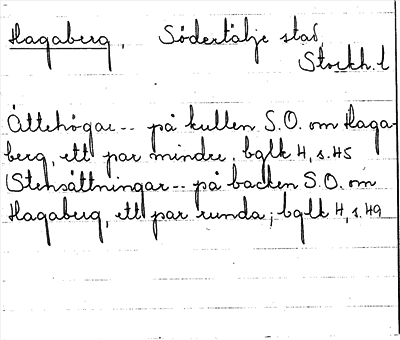 Hagaberg, Södertälje stad,
Stockh. l
Ättehögar -- på kullen S.O. om Haga-
berg, ett par mindre. bglk 4, s. 45
(Stensättningar -- på backen S.O. om
Hagaberg, ett par runda; bglk 4, s. 49